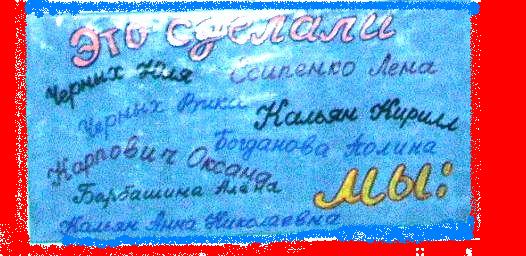 Это сделали
Черных Юля Есипенко Лена
Черных Вика Кальян Кирилл
Богданова Полина
Карпович Оксана
Барбашина Алёна мы:
Кальян Анна Николаевна